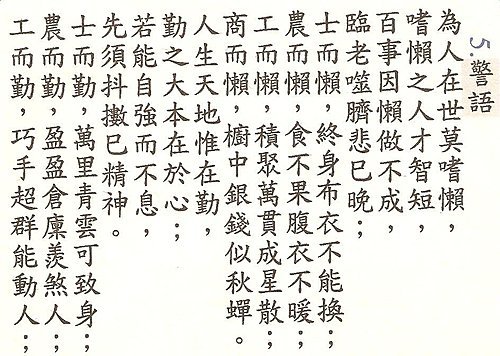 5.警語
為人在世莫嗜懶，
嗜懶之人才智短，
百事因懶做不成，
臨老噬臍悲已晚；
士而懶，終身布衣不能換；
農而懶，食不果腹衣不暖；
工而懶，積聚萬貫成星散；
商而懶，櫥中銀錢似秋蟬。
人生天地惟在勤，
勤之大本在於心；
若能自強而不息，
先須抖擻已精神。
士而勤，萬里青雲可致身；
農而勤，盈盈倉廩羨煞人；
工而勤，巧手超群能動人；